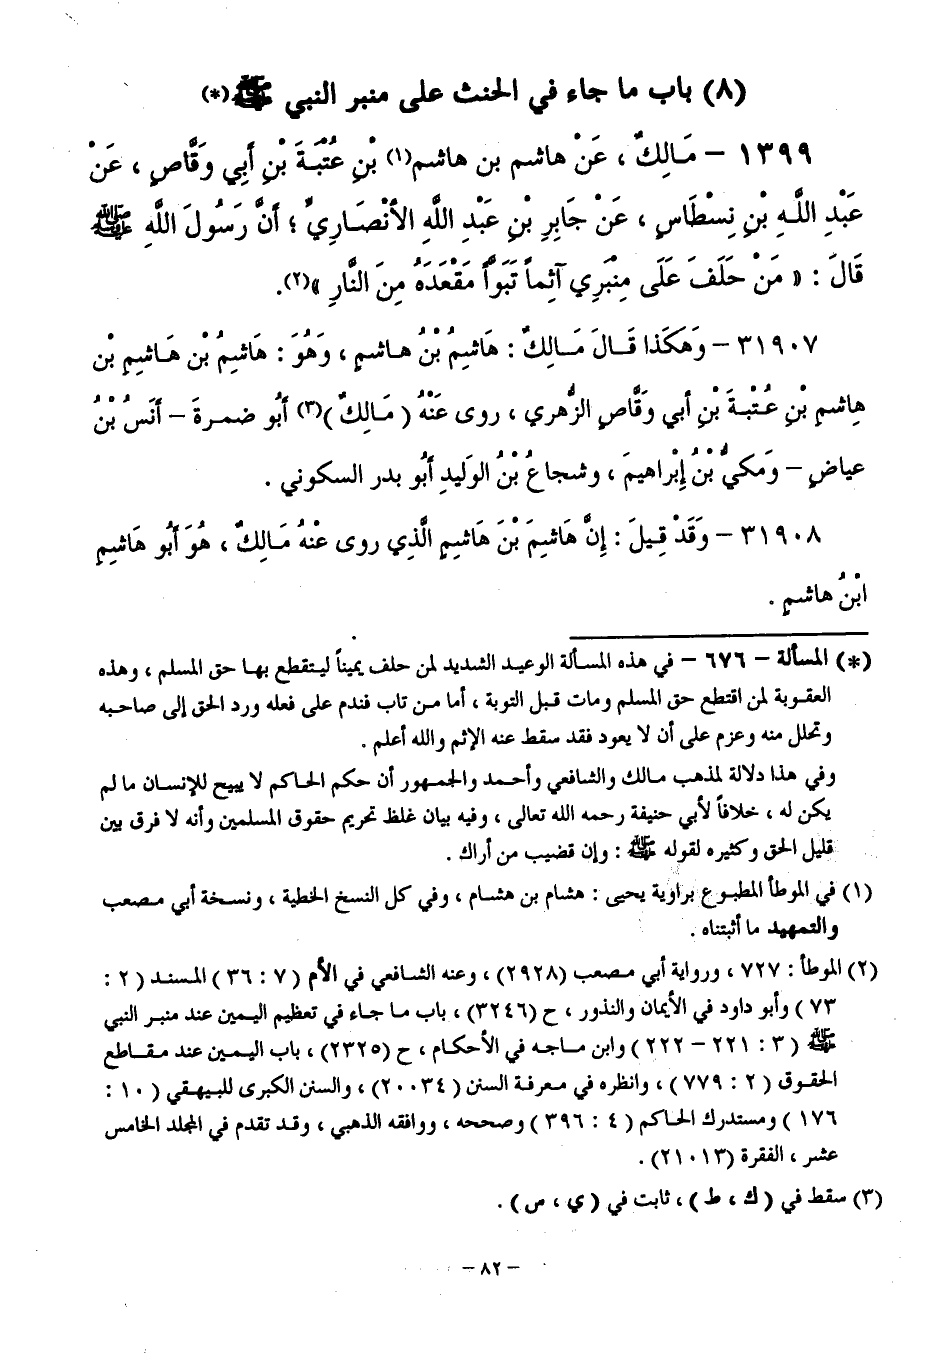 (٨) باب ما جاء في الحنث على منبر النبي ﷺ(*)
١٣٩٩ – مَالِكٌ ، عَنْ هاشم بن هاشم(١) بْنِ عُتْبَةَ بْنِ أَبِي وَقَّاصٍ ، عَنْ
عَبْدِ اللَّهِ بْنِ نِسْطَاسٍ ، عَنْ جَابِرِ بْنِ عَبْدِ اللَّهِ الأَنْصَارِيِّ ؛ أَنَّ رَسُولَ اللَّهِ ﷺ
قَالَ : « مَنْ حَلَفَ عَلَى مِنْبَرِي آثِماً تَبَوَّأَ مَقْعَدَهُ مِنَ النَّارِ »(٢).
٣١٩٠٧ – وَهَكَذا قَالَ مَالِكٌ : هَاشِمُ بْنُ هاشمٍ ، وَهُوَ : هَاشِمُ بْن هَاشِمِ بْنِ
هِاشمِ بْنِ عُتْبَةَ بْنِ أبي وَقَّاصٍ الزُّهري ، روى عَنْهُ ( مَالِكٌ )(٣) أَبُو ضمرةَ – أَنَسُ بْنُ
عياضٍ – وَمَكيُّ بْنُ إِبْراهيمَ ، وشجاعُ بْنُ الوَليدِ أَبُو بدر السكوني .
٣١٩٠٨ – وَقَدْ قِيلَ : إِنَّ هَاشِمَ بْنَ هَاشِمٍ الَّذِي روى عَنْهُ مَالِكٌ ، هُوَ أَبُو هَاشِمِ
ابْنُ هاشمٍ .
(*) المسألة – ٦٧٦ – في هذه المسألة الوعيد الشديد لمن حلف يميناً ليتقطع بها حق المسلم ، وهذه
العقوبة لمن اقتطع حق المسلم ومات قبل التوبة ، أما من تاب فندم على فعله ورد الحق إلى صاحبه
وتحلل منه وعزم على أن لا يعود فقد سقط عنه الإثم والله أعلم .
وفي هذا دلالة لمذهب مالك والشافعي وأحمد والجمهور أن حكم الحاكم لا يبيح للإنسان ما لم
يكن له ، خلافاً لأبي حنيفة رحمه الله تعالى ، وفيه بيان غلظ تحريم حقوق المسلمين وأنه لا فرق بين
قليل الحق وكثيره لقوله ﷺ : وإن قضيب من أراك .
(١) في الموطأ المطبوع براوية يحيى : هشام بن هشام ، وفي كل النسخ الخطية ، ونسخة أبي مصعب
والتمهيد ما أثبتناه .
(٢) الموطأ : ٧٢٧ ، ورواية أبي مصعب (٢٩٢٨) ، وعنه الشافعي في الأم ( ٧ : ٣٦ ) المسند ( ٢ :
٧٣ ) وأبو داود في الأيمان والنذور ، ح (٣٢٤٦) ، باب ما جاء في تعظيم اليمين عند منبر النبي
ﷺ ( ٣ : ٢٢١ – ٢٢٢ ) وابن ماجه في الأحكام ، ح (٢٣٢٥) ، باب اليمين عند مقاطع
الحقوق ( ٢ : ٧٧٩ ) ، وانظره في معرفة السنن ( ٢٠٠٣٤) ، والسنن الكبرى للبيهقي ( ١٠ :
١٧٦ ) ومستدرك الحاكم ( ٤ : ٣٩٦ ) وصححه ، ووافقه الذهبي ، وقد تقدم في المجلد الخامس
عشر ، الفقرة (٢١٠١٣) .
(٣) سقط في ( ك ، ط ) ، ثابت في ( ي ، س ) .
– ٨٢ –